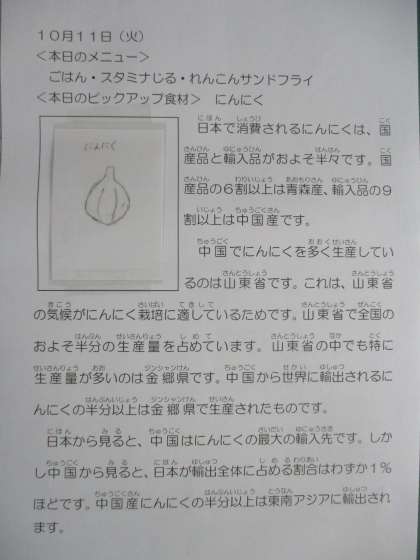 10月11日（火）
＜本日のメニュー＞
ごはん・スタミナじる・れんこんサンドフライ
＜本日のピックアップ食材＞　にんにく
にんにく
日本で消費されるにんにくは、国
産品と輸入品がおよそ半々です。国
産品の6割以上は青森産、輸入品の9
割以上は中国産です。
中国でにんにくを多く生産してい
るのは山東省です。これは、山東省
の気候がにんにく栽培に適しているためです。山東省で全国の
およそ半分の生産量を占めています。山東省の中でも特に
生産量が多いのは金郷県です。中国から世界に輸出されるに
んにくの半分以上は金郷県で生産されたものです。
日本から見ると、中国はにんにくの最大の輸入先です。しか
し中国から見ると、日本が輸出全体に占める割合はわずか1％
ほどです。中国産にんにくの半分以上は東南アジアに輸出され
ます。